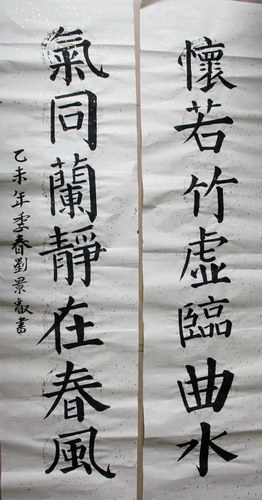 懷若竹虛臨曲水
氣同蘭靜在春風
乙未年季春劉景叡書